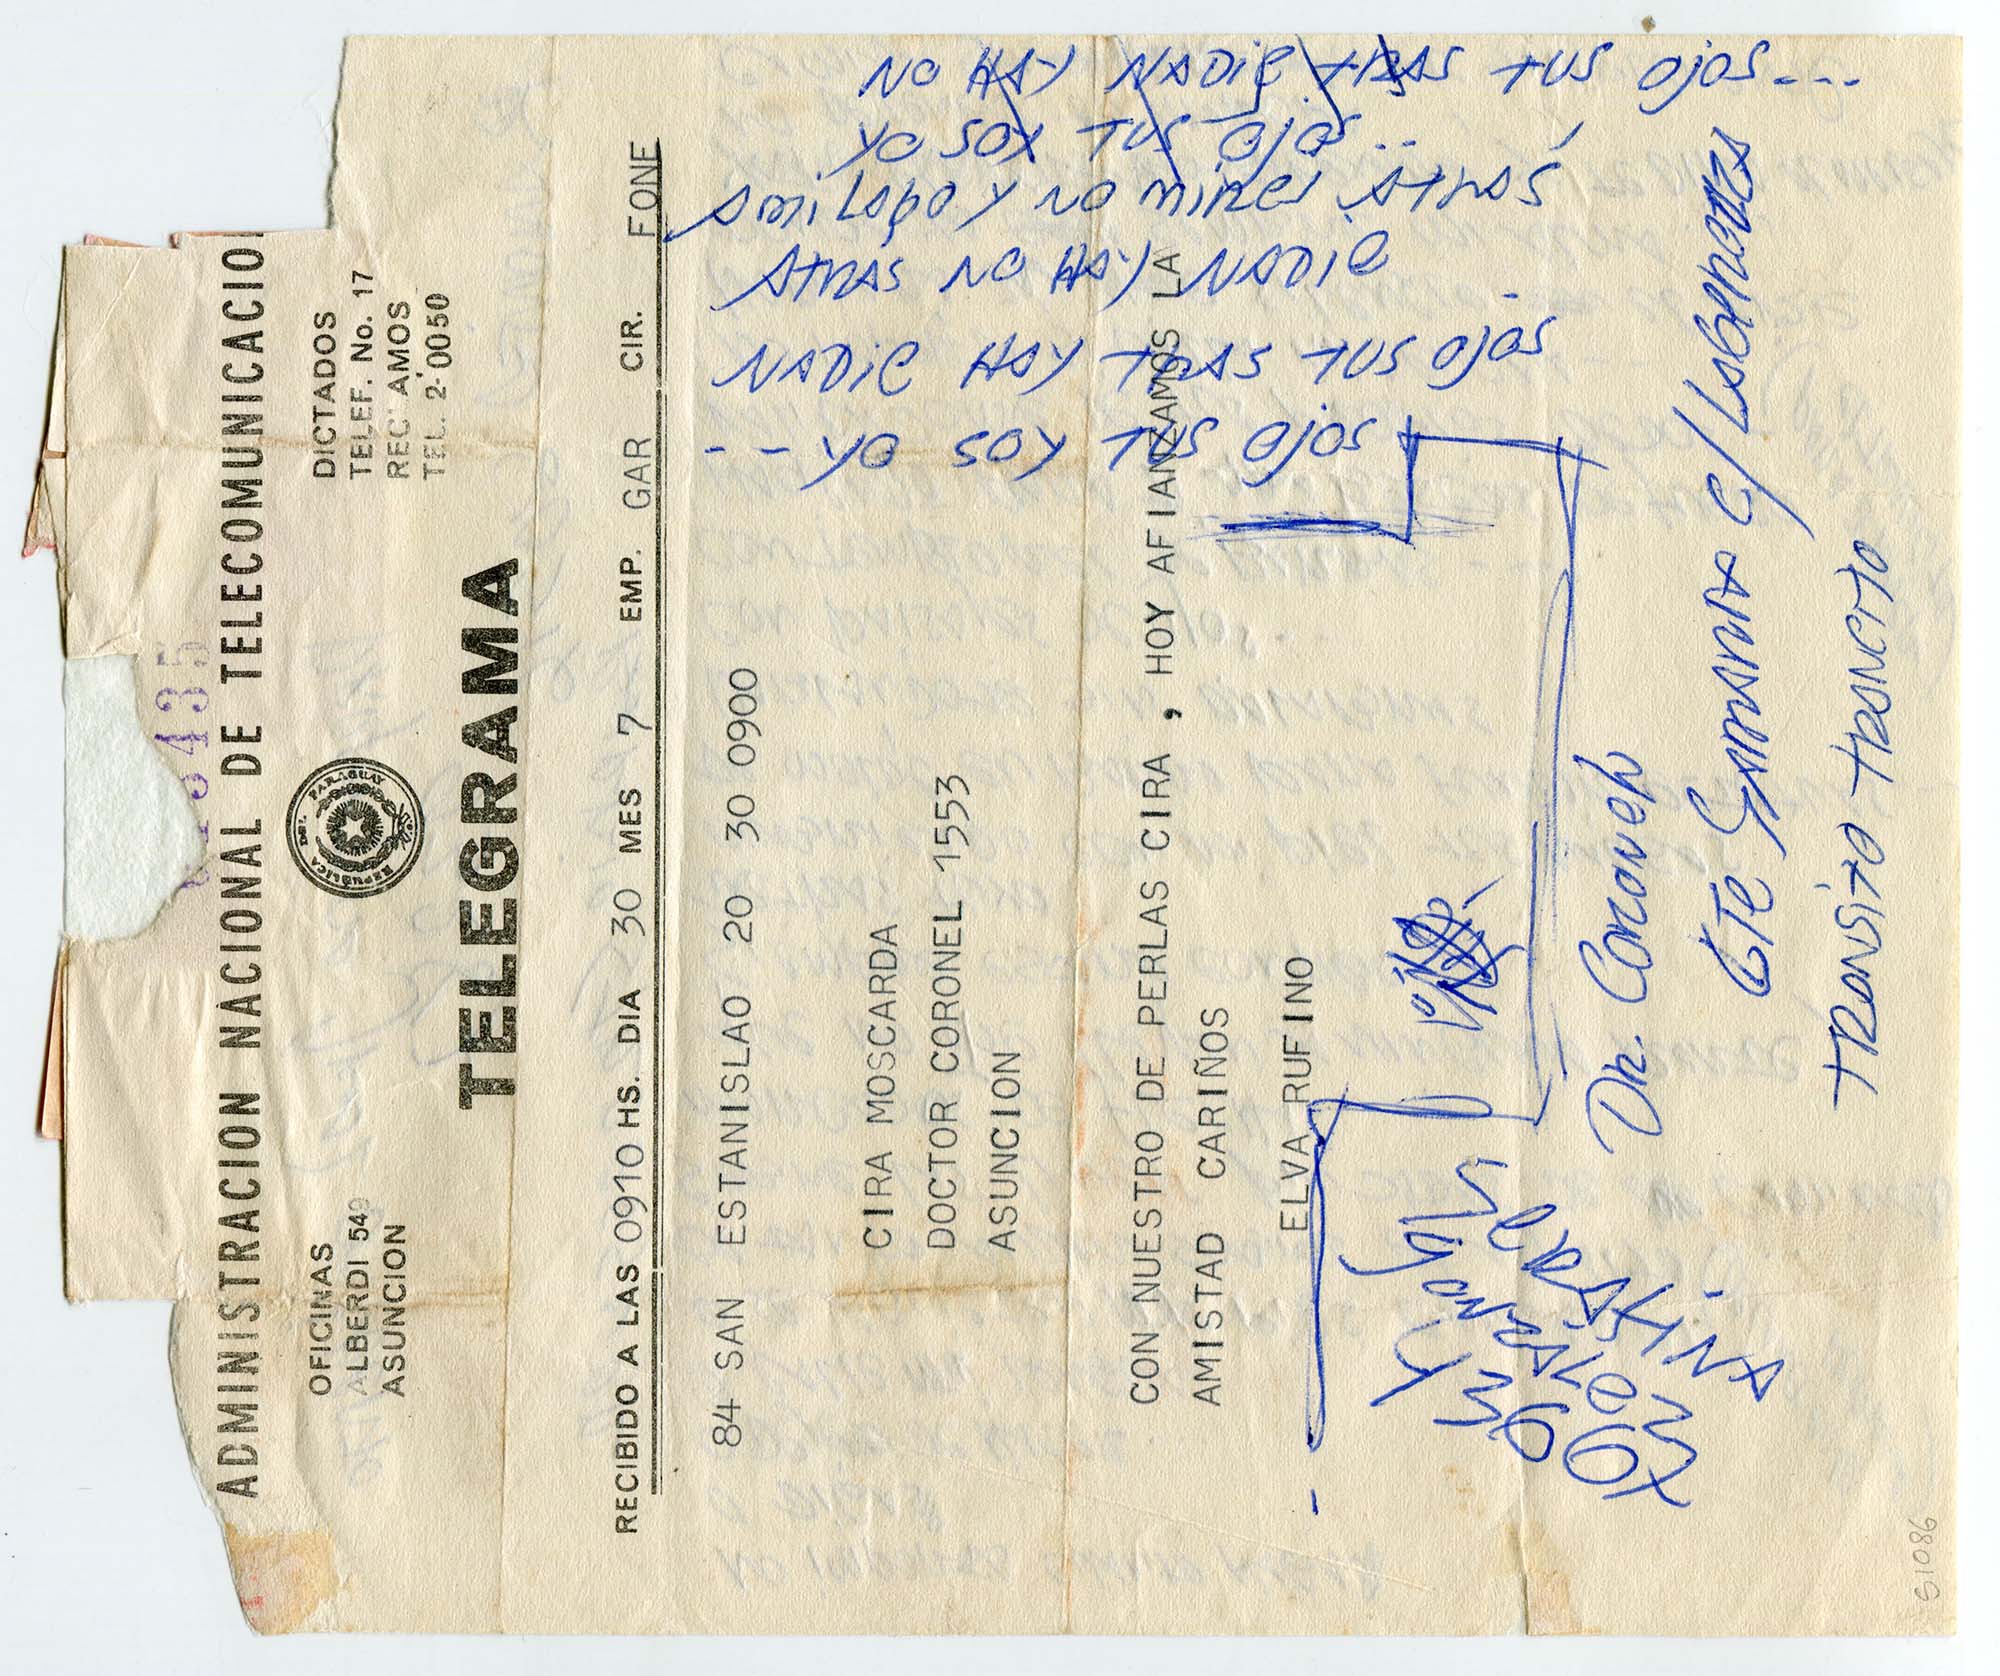 ADMINISTRACION NACIONAL DE TELECOMUNICACIO
OFICINAS
ALBERDI 549
ASUNCION
REPUBLICA DEL PARAGUAY
DICTADOS
TELEF. No. 17
RECLAMOS
TEL. 2-0050
TELEGRAMA
RECIBIDO A LAS 0910 HS. DIA 30 MES 7 EMP. GAR CIR. FONE
84 SAN ESTANISLAO 20 30 0900
CIRA MOSCARDA
DOCTOR CORONEL 1553
ASUNCION
CON NUESTRO DE PERLAS CIRA, HOY AFIANZAMOS LA
AMISTAD CARIÑOS
ELVA RUFINO
NO HAY NADIE TRAS TUS OJOS---
YO SOY TUS OJOS..
A mi LADO Y NO MIRES ATRÁS
ATRÁS NO HAY NADIE
NADIE HAY TRAS TUS OJOS
--- YO SOY TUS OJOS
Dr. Coronel
TRANSITO
S1086